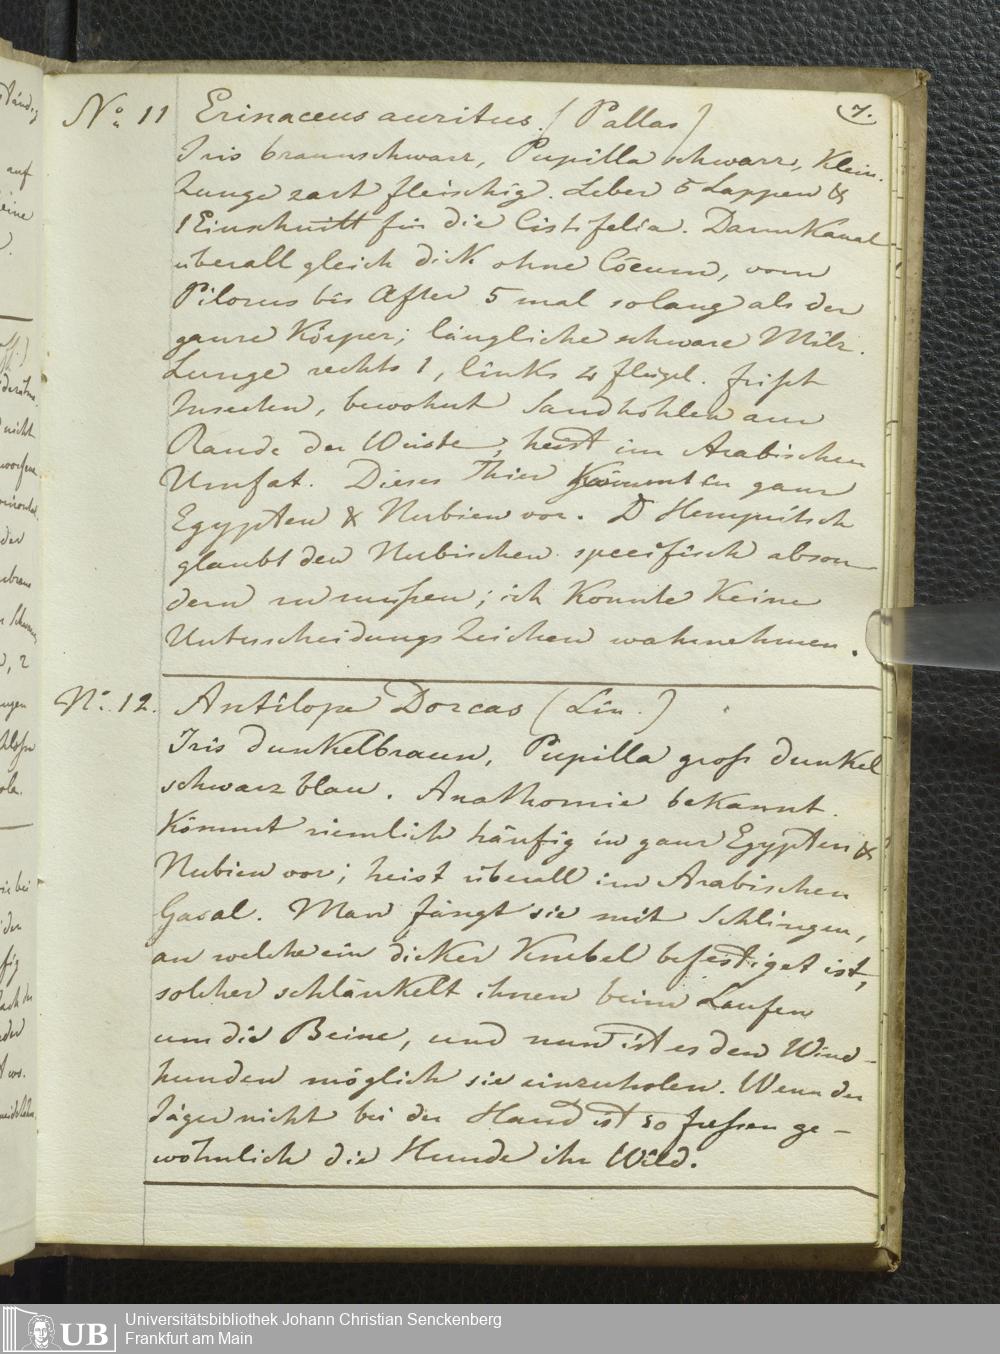 7.
No. 11 Erinaceus auritus. (Pallas)
Iris braunschwarz, Pupilla schwarz, Klein.
Zunge zart fleischig. Leber 5 Lappen &
1 Einschnitt für die Cistifelia. Darmkanal
überall gleich dick ohne Cöcum, vom
Pilorus bis After 5 mal so lang als der
ganze Körper; längliche schware Milz.
Lunge rechts 1, links 4 flügel. frißt
Insecten, bewohnt Sandhöhlen am
Rande der Wüste, heist im Arabischen
Umfat. Dieses Thier kömmt in ganz
Egypten & Nubien vor. D Hemprisch
glaubt den Nubischen specifisch abson-
dern zu mußen; ich konnte keine
Unterscheidungs Zeichen wahrnehmen.
No. 12. Antilope Dorcas (Lin.)
Iris dunkelbraun, Pupilla groß dunkel
schwarz blau. Anathomie bekannt.
Kömmt ziemlich häufig in ganz Egypten &
Nubien vor; heist überall im Arabischen
Gasal. Man fängt sie mit Schlingen,
an welche ein dicker Knebel befestiget ist,
solcher schlänkelt ihnen beim Laufen
um die Beine, und nun ist es den Wind-
hunden möglich sie einzuholen. Wenn der
Jäger nicht bei der Hand ist so freßen ge-
wöhnlich die Hunde ihr Wild.
UB
Universitätsbibliothek Johann Christian Senckenberg
Frankfurt am Main